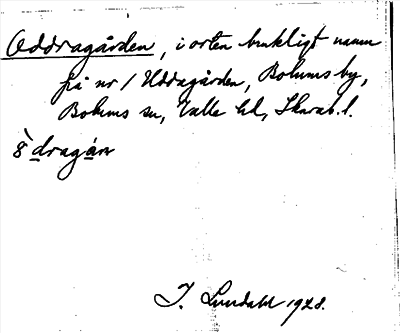 Oddragården, i orten brukligt namn
på nr 1 Uddagården, Bolums by,
Bolums sn, Valle hd, Skarab. l.
dragáṛ
I. Lundahl 1928.